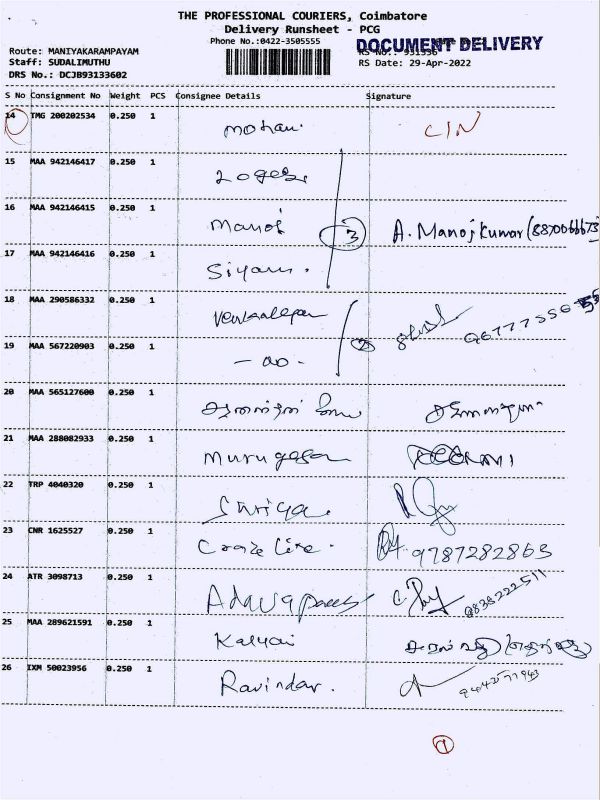 THE PROFESSIONAL COURIERS, Coimbatore
Delivery Runsheet - PCG
Phone No.:0422-3505555
DOCUMENT DELIVERY
Route: MANIYAKARAMPAYAM
RS No.: 931336
Staff: SUDALIMUTHU
RS Date: 29-Apr-2022
DRS No.: DCJB93133602
S No Consignment No Weight PCS Consignee Details Signature
14 TMG 200202534 0.250 1 mohan. CIN
15 MAA 942146417 0.250 1 Loges.
16 MAA 942146415 0.250 1 Manoj 3 A. Manojkumar (8870066673)
17 MAA 942146416 0.250 1 Siyam.
18 MAA 290586332 0.250 1
19 MAA 567220903 0.250 1 - do - 2
20 MAA 565127600 0.250 1
21 MAA 288082933 0.250 1 Murugesan
22 TRP 4040320 0.250 1 Suriya.
23 CNR 1625527 0.250 1 9787282863
24 ATR 3098713 0.250 1 9838222511
25 MAA 289621591 0.250 1 Kalyai
26 IXM 50023956 0.250 1 Ravindar.